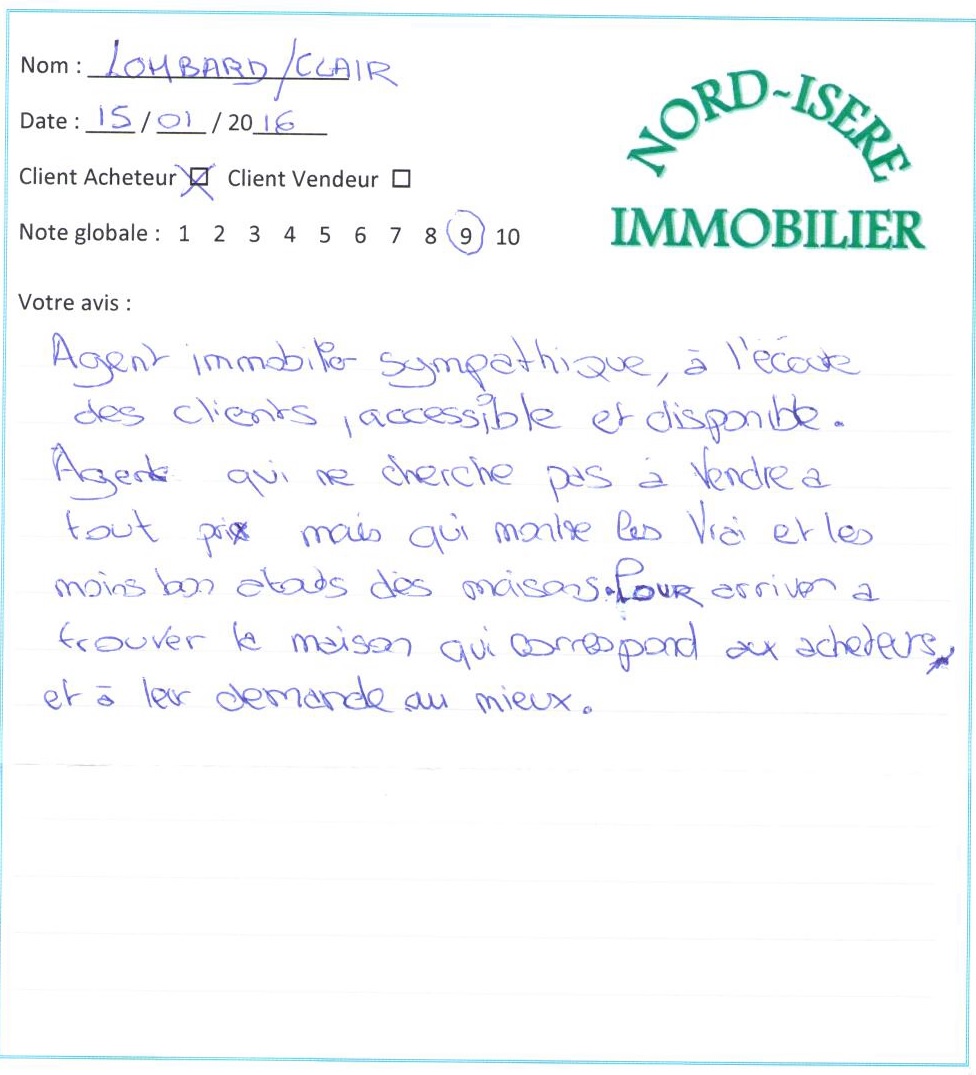 Nom : LOMBARD/CLAIR
Date : 15/01/2016
Client Acheteur ☒ Client Vendeur ☐
Note globale : 1 2 3 4 5 6 7 8 9 10
NORD-ISERE
IMMOBILIER
Votre avis :
Agent immobilier sympathique, à l'écoute
des clients, accessible et disponible.
Agent qui ne cherche pas à vendre a
tout prix mais qui montre les vrai et les
moins bon etats des maisons. Pour arriver a
trouver la maison qui correspond aux acheteurs,
et à leur demande au mieux.